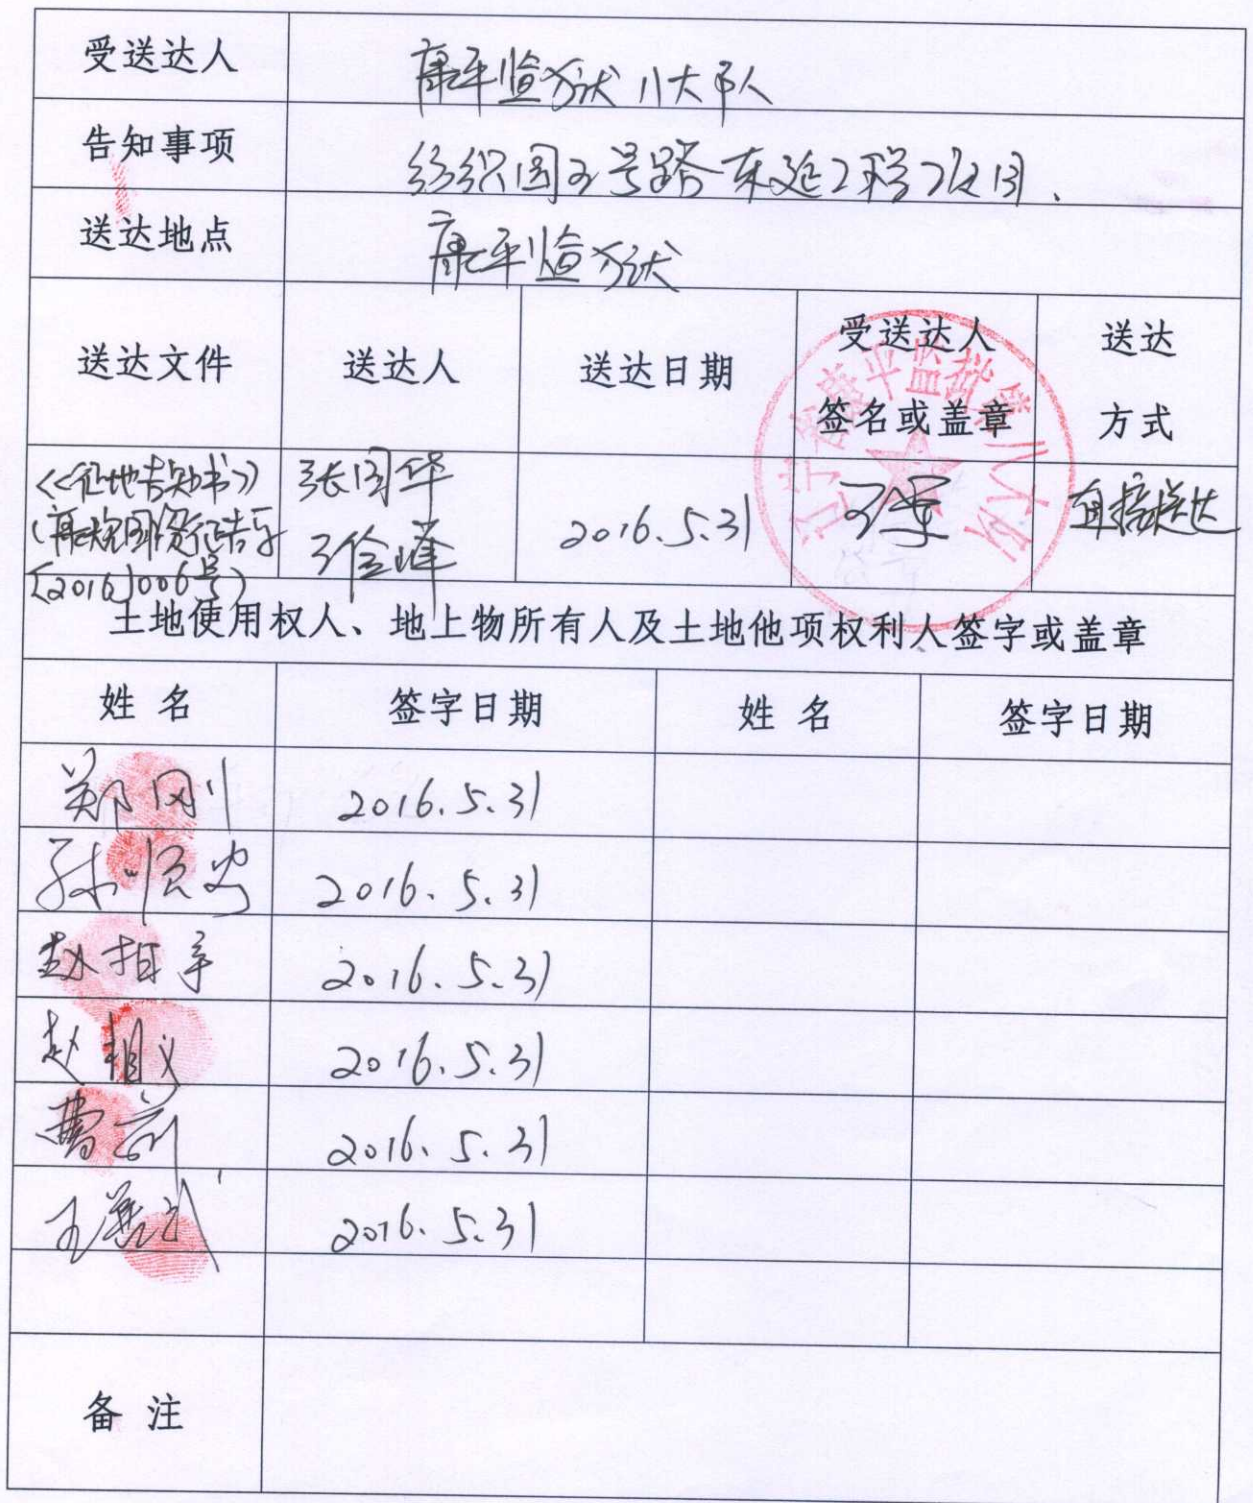 受送达人 康平监狱八大队
告知事项 纺织园2号路东延工程项目.
送达地点 康平监狱
送达文件 送达人 送达日期 受送达人 签名或盖章 送达 方式
《征地告知书》 张国华
2016.5.31 直接送达
〔2016〕006号)
土地使用权人、地上物所有人及土地他项权利人签字或盖章
姓 名 签字日期 姓 名 签字日期
郑刚 2016.5.31
孙恒忠 2016.5.31
赵相 2016.5.31
赵相义 2016.5.31
曹 2016.5.31
王 2016.5.31
备 注